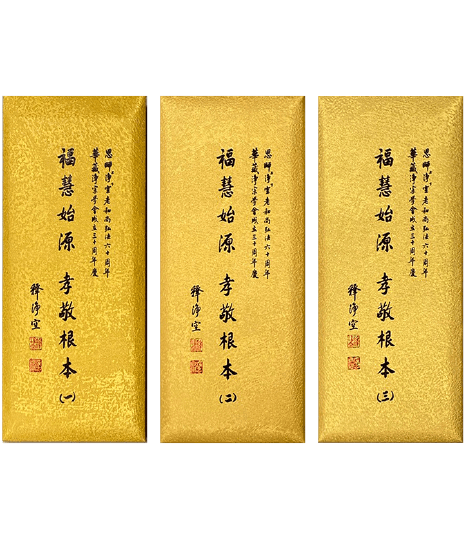 恩師淨空老和尚弘法六十周年
華藏淨宗學會成立三十周年慶
福慧始源 孝敬根本(一)
釋淨空
恩師淨空老和尚弘法六十周年
華藏淨宗學會成立三十周年慶
福慧始源 孝敬根本(二)
釋淨空
恩師淨空老和尚弘法六十周年
華藏淨宗學會成立三十周年慶
福慧始源 孝敬根本(三)
釋淨空